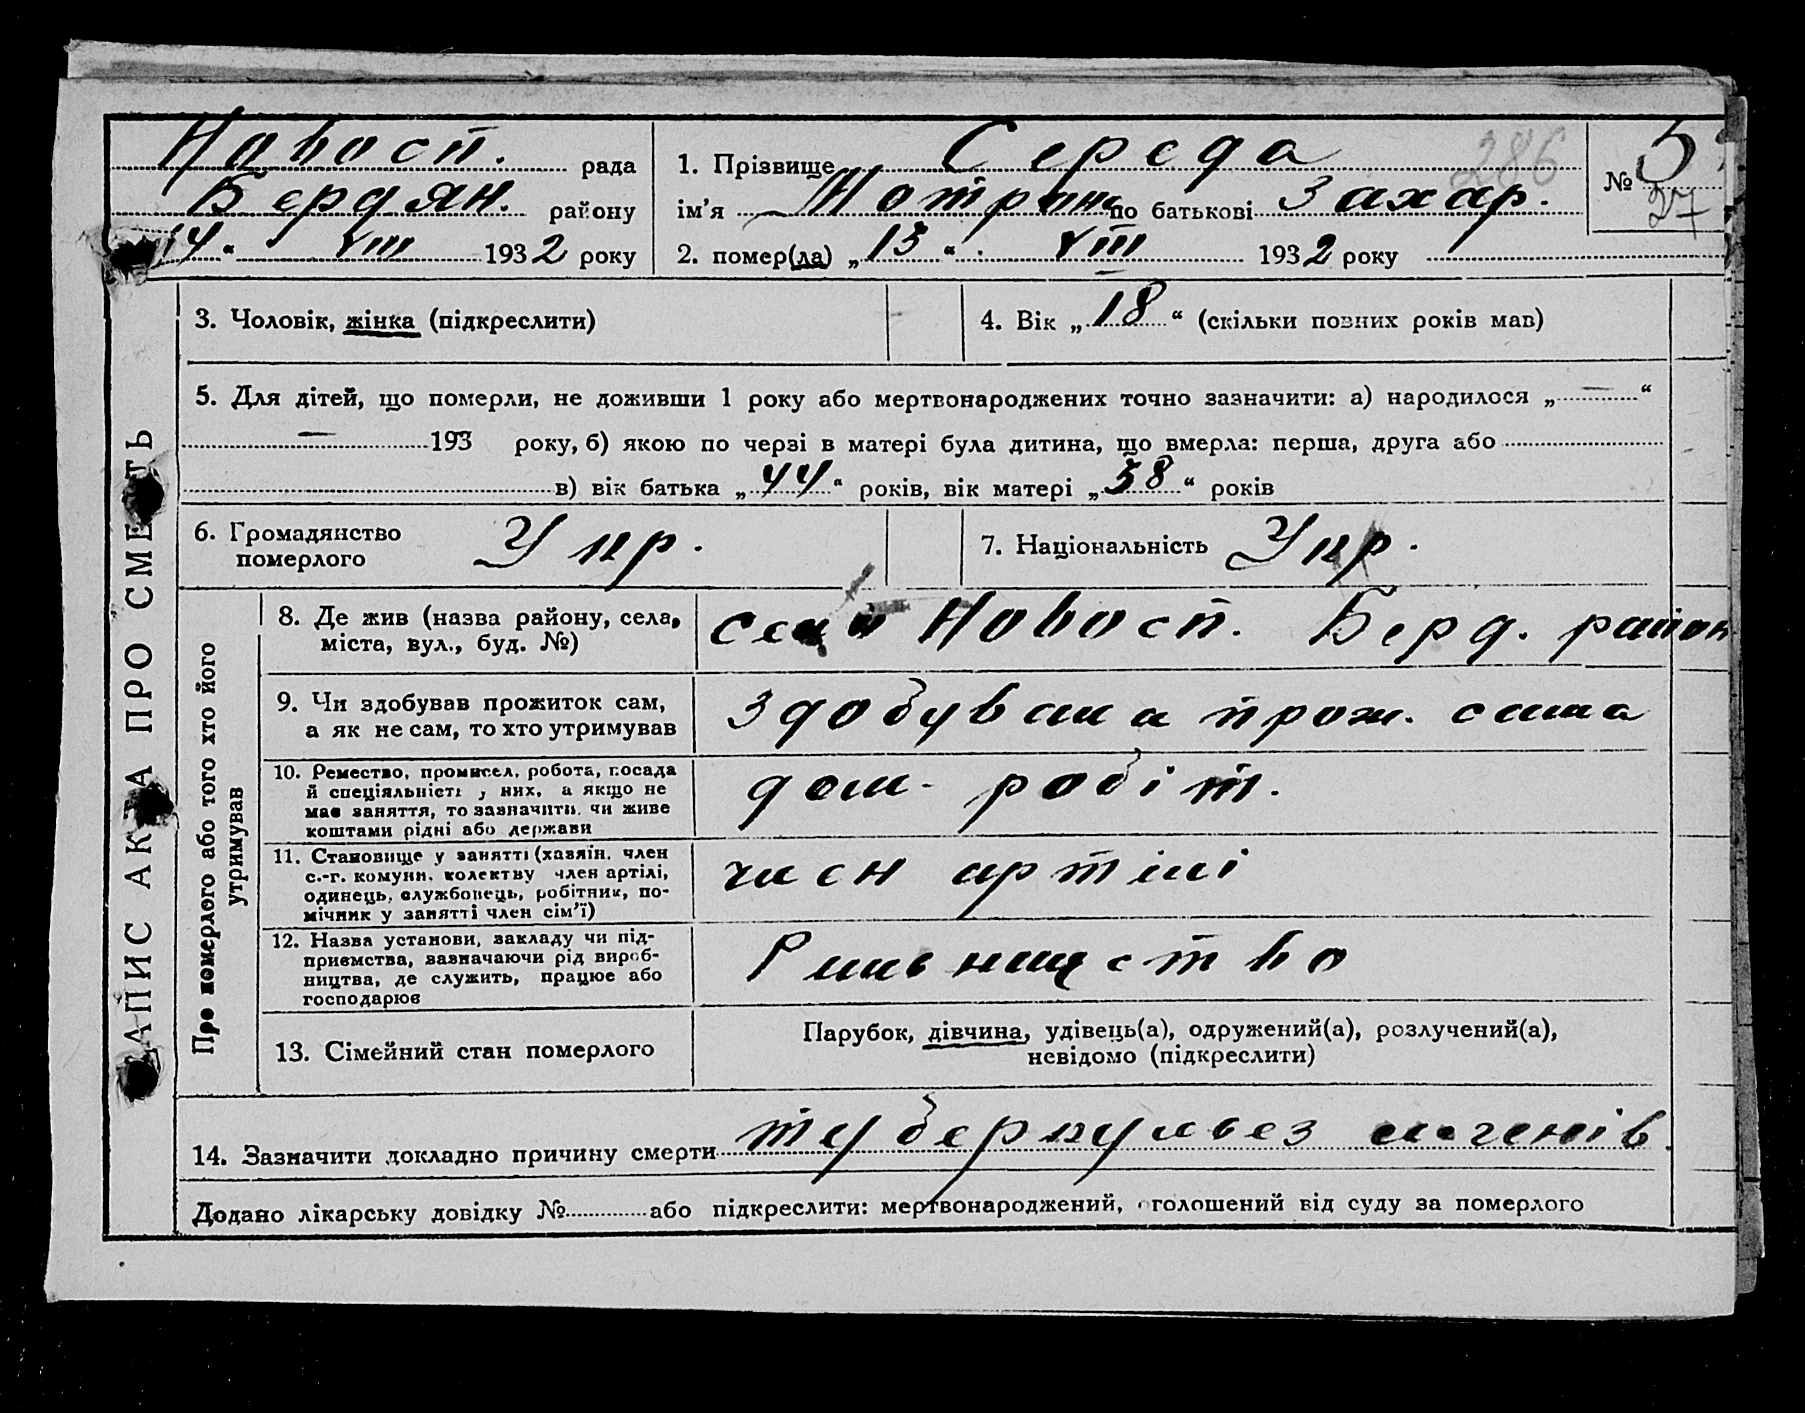 Новосп. рада
Бердян. району
14 " VIII 1932 року
1. Прізвище Середа
ім'я Мотрина по батькові Захар.
2. помер(ла) „ 13 " VIII 1932 року
286
№ 5
27
3. Чоловік, жінка (підкреслити)
4. Вік „ 18 " (скільки повних років мав)
5. Для дітей, що померли, не доживши 1 року або мертвонароджених точно зазначити: а) народилося „ — "
— 193 року, б) якою по черзі в матері була дитина, що вмерла: перша, друга або
в) вік батька „ 44 " років, вік матері „ 38 " років
6. Громадянство
померлого Укр.
7. Національність Укр.
ЗАПИС АКТА ПРО СМЕРТЬ
Про померлого або того хто його
утримував
8. Де жив (назва району, села,
міста, вул., буд. №)
село Новосп. Берд. район
9. Чи здобував прожиток сам,
а як не сам, то хто утримував
Здобувала прож. сама
10. Ремество, промисел, робота, посада
й спеціяльність у них, а якщо не
має заняття, то зазначити, чи живе
коштами рідні або держави
дом. робіт.
11. Становище у занятті (хазяїн, член
с.-г. комуни, колективу член артілі,
одинець, службовець, робітник, по-
мічник у занятті член сім'ї)
член артілі
12. Назва установи, закладу чи під-
приємства, зазначаючи рід вироб-
ництва, де служить, працює або
господарює
Рильництво
13. Сімейний стан померлого
Парубок, дівчина, удівець(а), одружений(а), розлучений(а),
невідомо (підкреслити)
14. Зазначити докладно причину смерти туберкульез легенів.
Додано лікарську довідку № або підкреслити: мертвонароджений, оголошений від суду за померлого